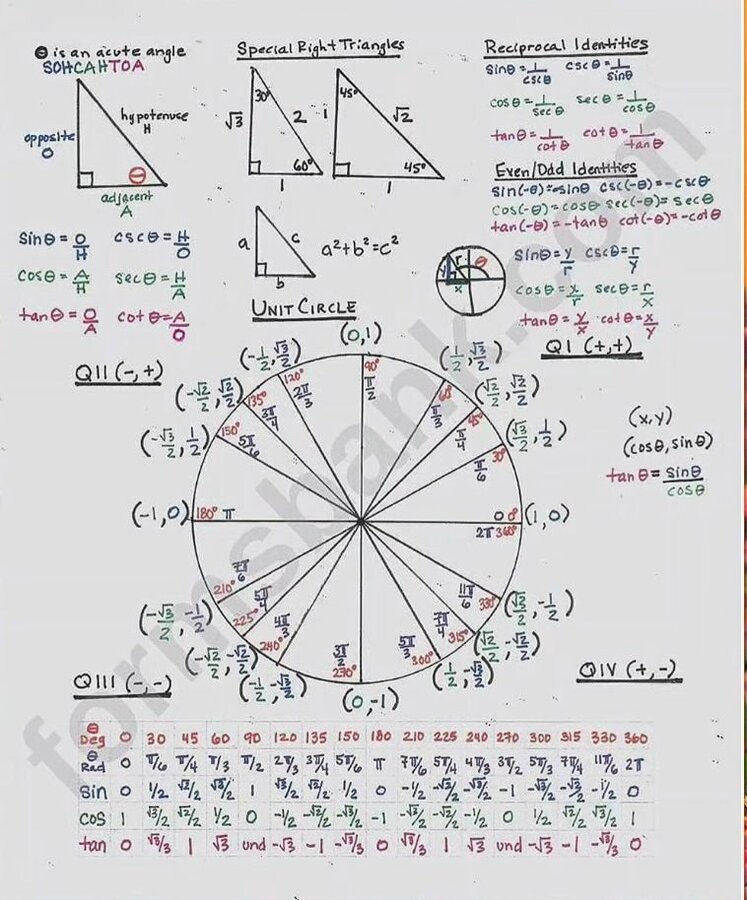 θ is an acute angle
SOHCAHTOA
opposite
O
hypotenuse
H
θ
adjacent
A
sinθ = O/H cscθ = H/O
cosθ = A/H secθ = H/A
tanθ = O/A cotθ = A/O
Special Right Triangles
30°
√3
2
60°
1
45°
1
√2
45°
1
a
c
b
a²+b²=c²
Reciprocal Identities
sinθ = 1/cscθ cscθ = 1/sinθ
cosθ = 1/secθ secθ = 1/cosθ
tanθ = 1/cotθ cotθ = 1/tanθ
Even/Odd Identities
sin(-θ)=-sinθ csc(-θ)=-cscθ
cos(-θ)=cosθ sec(-θ)=secθ
tan(-θ)=-tanθ cot(-θ)=-cotθ
y r θ
x
sinθ=y/r cscθ=r/y
cosθ=x/r secθ=r/x
tanθ=y/x cotθ=x/y
UNIT CIRCLE
(0,1)
QII (-,+)
QI (+,+)
(-1/2, √3/2) 120° 2π/3
90° π/2
(1/2, √3/2) 60° π/3
(-√2/2, √2/2) 135° 3π/4
(√2/2, √2/2) 45° π/4
(-√3/2, 1/2) 150° 5π/6
(√3/2, 1/2) 30° π/6
(x,y)
(cosθ, sinθ)
tanθ = sinθ/cosθ
(-1,0) 180° π
0 0° (1,0)
2π 360°
7π/6 210° (-√3/2, -1/2)
11π/6 330° (√3/2, -1/2)
5π/4 225° (-√2/2, -√2/2)
7π/4 315° (√2/2, -√2/2)
4π/3 240° (-1/2, -√3/2)
3π/2 270°
5π/3 300° (1/2, -√3/2)
(0,-1)
QIII (-,-)
QIV (+,-)
θ Deg 0 30 45 60 90 120 135 150 180 210 225 240 270 300 315 330 360
θ Rad 0 π/6 π/4 π/3 π/2 2π/3 3π/4 5π/6 π 7π/6 5π/4 4π/3 3π/2 5π/3 7π/4 11π/6 2π
sin 0 1/2 √2/2 √3/2 1 √3/2 √2/2 1/2 0 -1/2 -√2/2 -√3/2 -1 -√3/2 -√2/2 -1/2 0
cos 1 √3/2 √2/2 1/2 0 -1/2 -√2/2 -√3/2 -1 -√3/2 -√2/2 -1/2 0 1/2 √2/2 √3/2 1
tan 0 √3/3 1 √3 und -√3 -1 -√3/3 0 √3/3 1 √3 und -√3 -1 -√3/3 0
formsbank.com